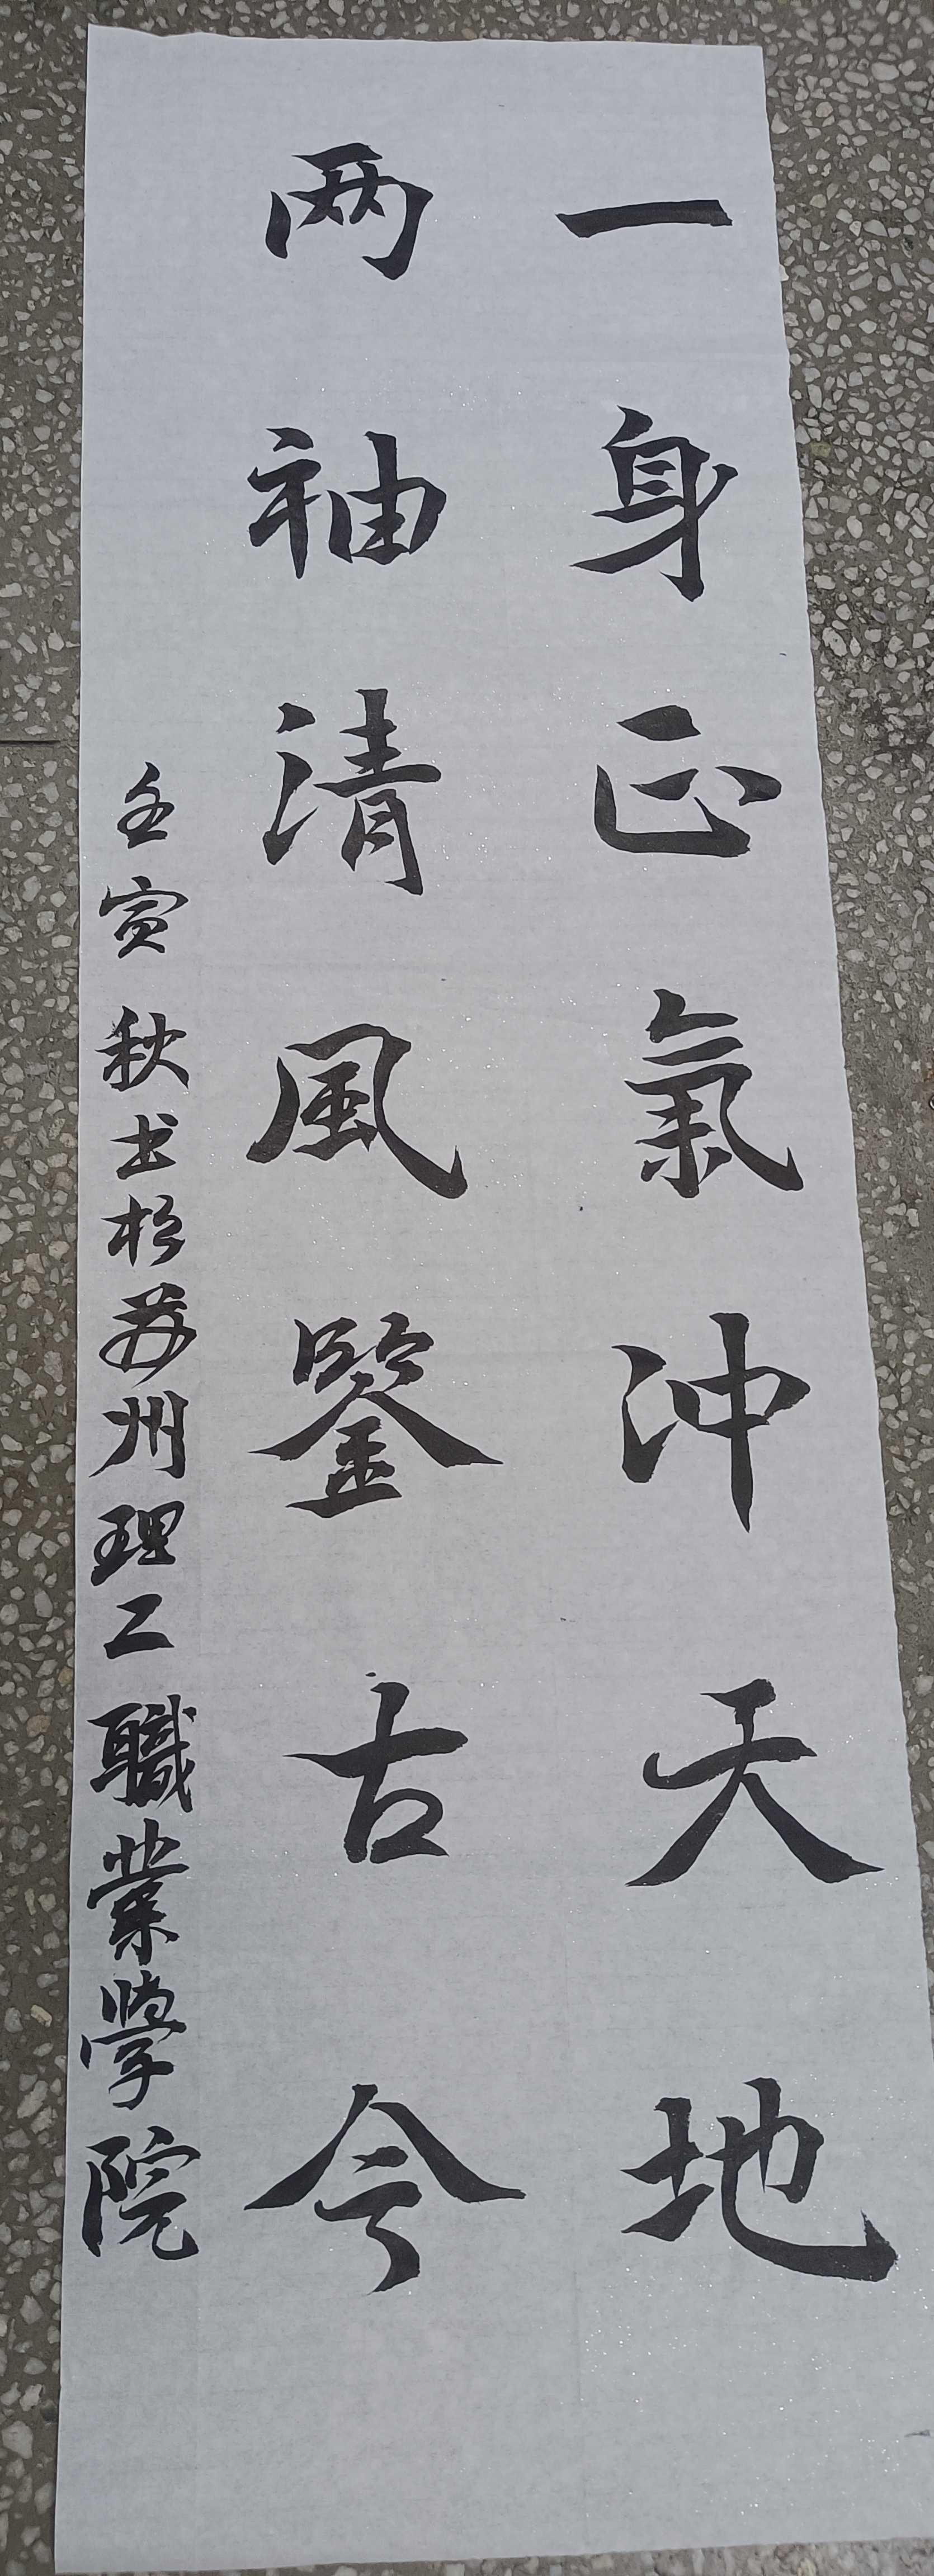 一身正氣沖天地
两袖清風鍳古今
壬寅秋书於苏州理工職業學院